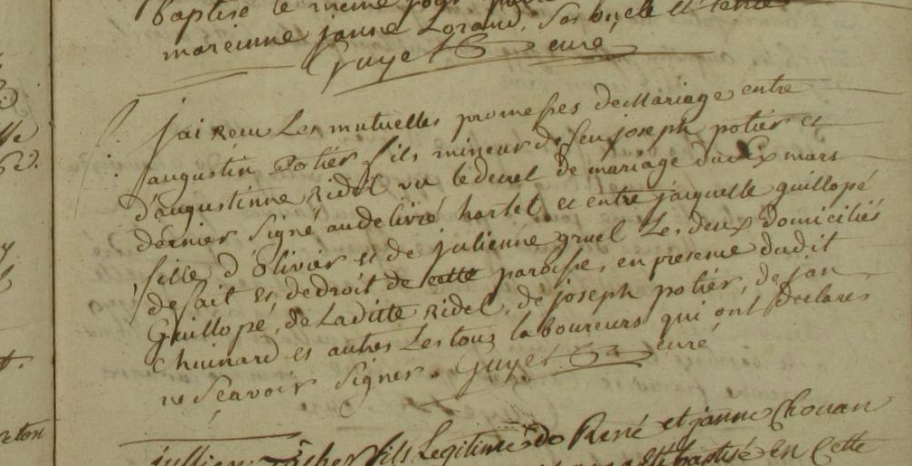 baptisé le meme jour
mareinne janne Lorand, ses oncle et tente
Guyet curé
j'ai Recu Les mutuelles promesses de Mariage entre
augustin Potier fils mineur de feu joseph potier et
d'augustinne Ridel vu le decret de mariage du dix mars
dernier signé audelivré hartel, et entre jacquelle guillopé
fille d'Olivier et de julienne gruel Les deux domiciliés
de fait et de droit de cette paroisse, en presence dudit
Guillopé, de Laditte Ridel, de joseph potier, de jan
Chuinard et autres Les tous laboureurs qui ont declarer
ne sçavoir signer. Guyet curé
jullien fils Legitime de René et janne Chouan
baptisé en Cette